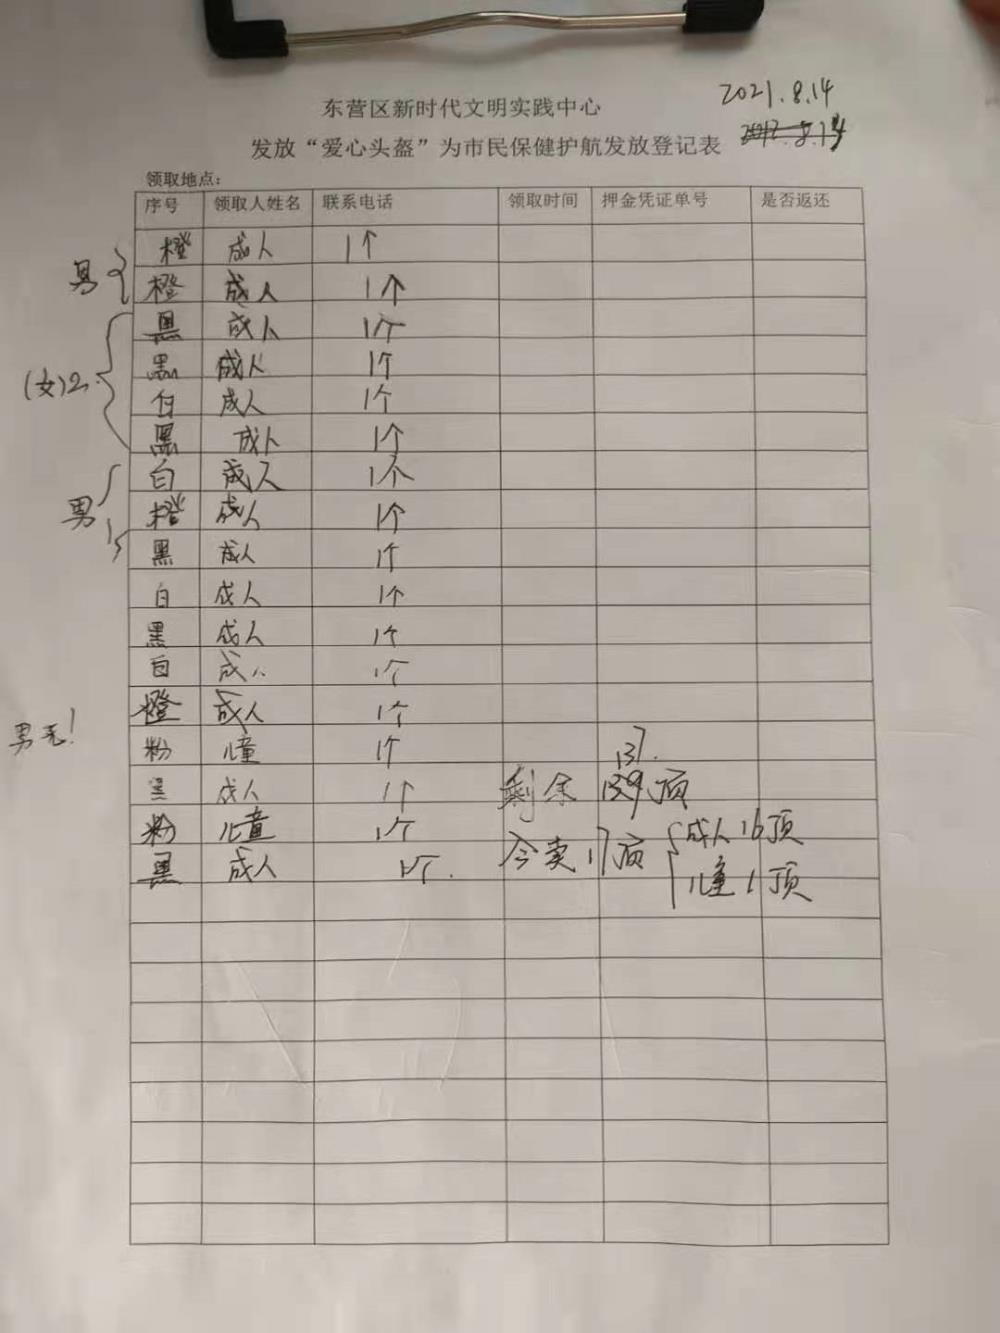 2021.8.14
东营区新时代文明实践中心
发放“爱心头盔”为市民保健护航发放登记表
领取地点:
序号 领取人姓名 联系电话 领取时间 押金凭证单号 是否返还
橙 成人 1个
男 橙 成人 1个
黑 成人 1个
黑 成人 1个
(女)2 白 成人 1个
黑 成人 1个
白 成人 1个
男 橙 成人 1个
黑 成人 1个
白 成人 1个
黑 成人 1个
白 成人 1个
橙 成人 1个
粉 儿童 1个 137.
黑 成人 1个 剩余 139顶
粉 儿童 1个 今卖17顶 成人16顶
黑 成人 1个. 儿童1顶